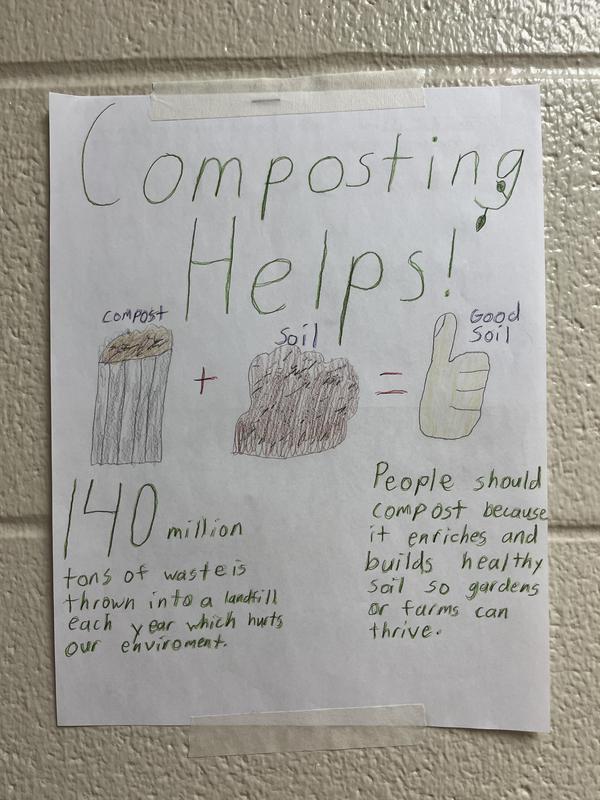 Composting
Helps!
compost
+
Soil
=
Good
Soil
140 million
tons of waste is
thrown into a landfill
each year which hurts
our enviroment.
People should
compost because
it enriches and
builds healthy
soil so gardens
or farms can
thrive.